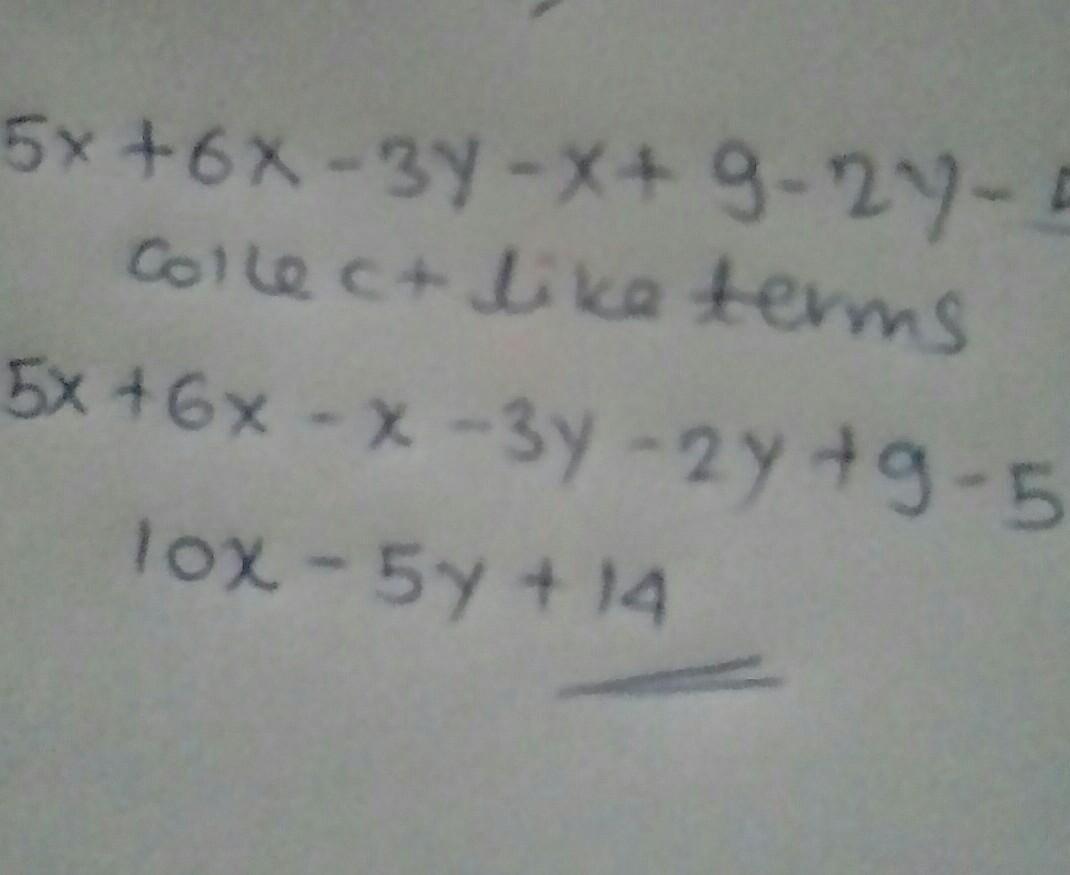 5x + 6x - 3y - x + 9 - 2y -
Collect like terms
5x + 6x - x - 3y - 2y + 9 - 5
10x - 5y + 14